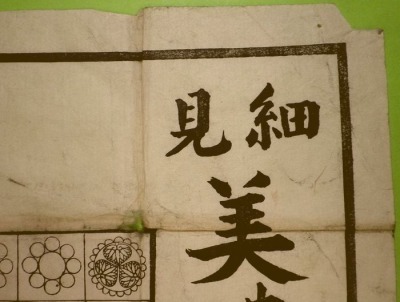 細見
美